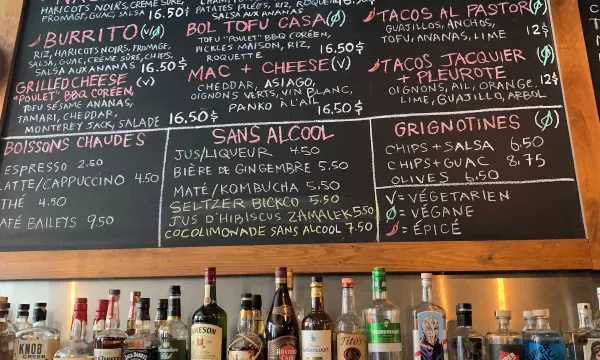 HARICOTS NOIRS, CRÈME SÛRE,
FROMAGE, GUAC, SALSA 16.50$
BURRITO (V/Ø)
RIZ, HARICOTS NOIRS, FROMAGE,
SALSA, GUAC, CRÈME SÛRE, CHIPS,
SALSA AUX ANANAS 16.50$
GRILLED CHEESE (V)
"POULET" BBQ CORÉEN,
TOFU SÉSAME ANANAS,
TAMARI, CHEDDAR,
MONTEREY JACK, SALADE 16.50$
PATATES PILÉES, RIZ,
SALSA AUX ANANAS
BOL TOFU CASA (Ø)
TOFU "POULET" BBQ CORÉEN,
PICKLES MAISON, RIZ,
ROQUETTE 16.50$
MAC + CHEESE (V)
CHEDDAR, ASIAGO,
OIGNONS VERTS, VIN BLANC,
PANKO À L'AIL 16.50$
TACOS AL PASTOR (Ø)
GUAJILLOS, ANCHOS,
TOFU, ANANAS, LIME 12$
TACOS JACQUIER (Ø)
+ PLEUROTE
OIGNONS, AIL, ORANGE, 12$
LIME, GUAJILLO, ARBOL
BOISSONS CHAUDES
ESPRESSO 2.50
LATTE/CAPPUCCINO 4.50
THÉ 4.50
CAFÉ BAILEYS 9.50
SANS ALCOOL
JUS/LIQUEUR 4.50
BIÈRE DE GINGEMBRE 5.50
MATÉ/KOMBUCHA 5.50
SELTZER BICKCO 5.50
JUS D'HIBISCUS ZAMALEK 5.50
COCOLIMONADE SANS ALCOOL 7.50
GRIGNOTINES (Ø)
CHIPS + SALSA 6.50
CHIPS + GUAC 8.75
OLIVES 6.50
V = VÉGÉTARIEN
Ø = VÉGANE
= ÉPICÉ
KNOB
CREEK
JAMESON
Havana
Barbancourt
Tito's